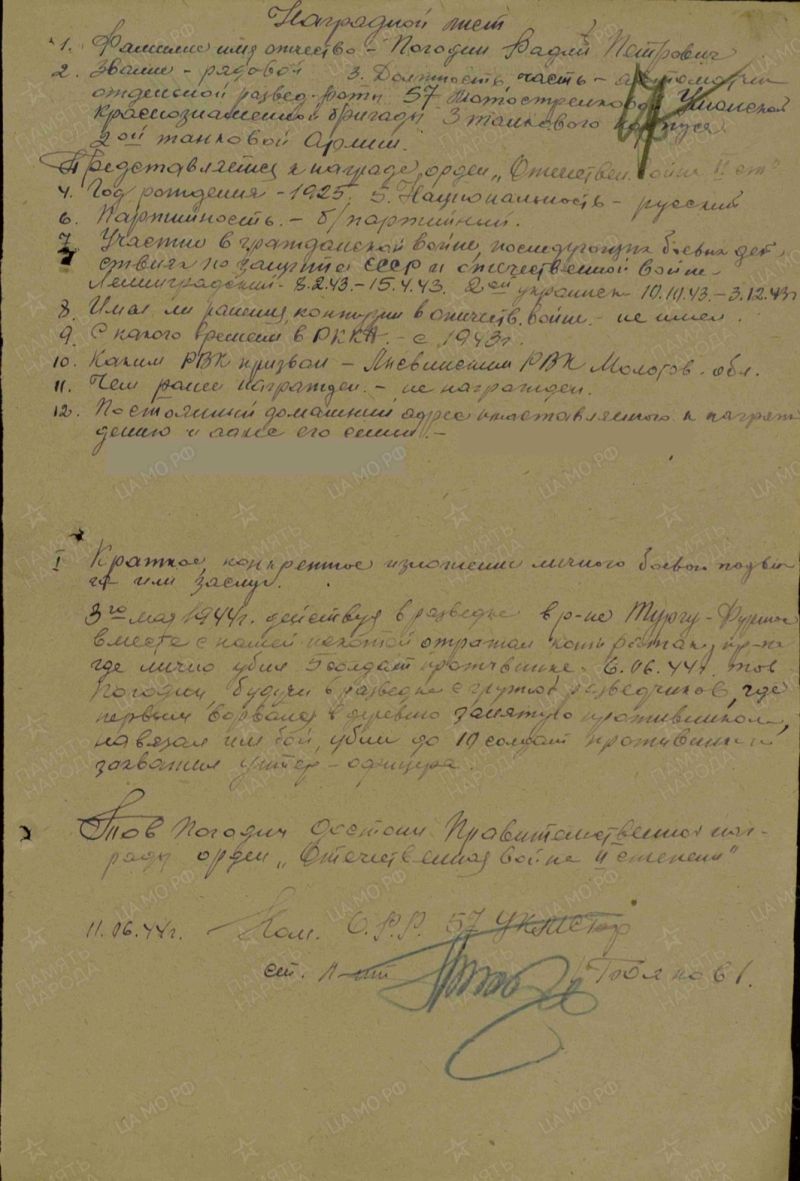 Наградной лист
1. Фамилие имя отчество – Погодин Фадей Петрович
2. Звание – рядовой 3. Должность, часть – автоматчик
отдельной развед. роты 57 Мотострелковой Уманской
Краснознаменной бригады 3 танкового корпуса
2ой танковой Армии.
Представляется к награде орден „Отечествен. войны II ст"
4. Год рождения – 1925. 5. Национальность – русский
6. Партийность. – б/партийный.
7. Участие в гражданской войне, последующих боевых дей
ствиях по защите СССР и отечественной войне –
Ленинградский 8.2.43. – 15.4.43. 2ой украинск 10.10.43. – 3.12.43г
8. Имел ли ранения, контузии в отечеств. войне – не имел.
9. С какого времени в РККА. – с 1943г.
10. Каким РВК призван – Лысвинским РВК Молотов. обл.
11. Чем ранее награжден. – не награжден.
12. Постоянный домашний адрес представляемого к награж
дению и адрес его семьи. –
I Краткое, конкретное изложение личного боевого подви
га или заслуг.
3го мая 1944г. действуя в разведке в р-не Тургу-Фрумос
вместе с нашей пехотой отражал контратаку пр-ка
где лично убил 5 солдат противника. 6.06.44г. тов
Погодин, будучи в разведке с группой разведчиков, где
первым ворвался в деревню занятую противником,
навязал им бой, убил до 10 солдат противника и
захватил унтер-офицера.
Тов Погодин достоин Правительственной наг-
рады орден „Отечественная война II степени"
11.06.44г. Ком. О.Р.Р. 57 УКМСбр
ст. л-нт